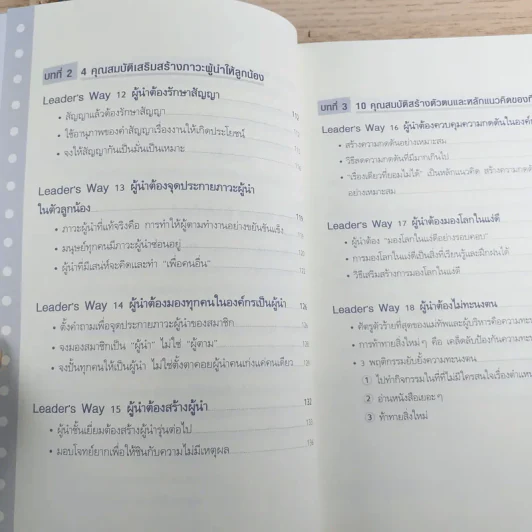 บทที่ 2 4 คุณสมบัติเสริมสร้างภาวะผู้นำให้ลูกน้อง
Leader's Way 12 ผู้นำต้องรักษาสัญญา
• สัญญาแล้วต้องรักษาสัญญา
• ใช้อานุภาพของคำสัญญาเรื่องงานให้เกิดประโยชน์
• จงให้สัญญากันเป็นมั่นเป็นเหมาะ
Leader's Way 13 ผู้นำต้องจุดประกายภาวะผู้นำ
ในตัวลูกน้อง
• ภาวะผู้นำที่แท้จริงคือ การทำให้ผู้ตามทำงานอย่างขยันขันแข็ง
• มนุษย์ทุกคนมีภาวะผู้นำซ่อนอยู่
• ผู้นำที่มีเสน่ห์จะคิดและทำ "เพื่อคนอื่น"
Leader's Way 14 ผู้นำต้องมองทุกคนในองค์กรเป็นผู้นำ
• ตั้งคำถามเพื่อจุดประกายภาวะผู้นำของสมาชิก
• จงมองสมาชิกเป็น "ผู้นำ" ไม่ใช่ "ผู้ตาม"
• จงปั้นทุกคนให้เป็นผู้นำ ไม่ใช่ตั้งตาคอยผู้นำคนเก่งแค่คนเดียว
Leader's Way 15 ผู้นำต้องสร้างผู้นำ 132
• ผู้นำชั้นเยี่ยมต้องสร้างผู้นำรุ่นต่อไป
• มอบโจทย์ยากเพื่อให้ชินกับความไม่มีเหตุผล
บทที่ 3 10 คุณสมบัติสร้างตัวตนและหลักแนวคิดของ
Leader's Way 16 ผู้นำต้องควบคุมความกดดันในองค์
• สร้างความกดดันอย่างเหมาะสม
• วิธีลดความกดดันที่มีมากเกินไป
• "เรื่องเดียวที่ยอมไม่ได้" เป็นหลักแนวคิด สร้างความกด
อย่างเหมาะสม
Leader's Way 17 ผู้นำต้องมองโลกในแง่ดี
• ผู้นำต้อง "มองโลกในแง่ดีอย่างรอบคอบ"
• การมองโลกในแง่ดีเป็นสิ่งที่เรียนรู้และฝึกฝนได้
• วิธีเสริมสร้างการมองโลกในแง่ดี
Leader's Way 18 ผู้นำต้องไม่ทะนงตน
• ศัตรูตัวร้ายที่สุดของแม่ทัพและผู้บริหารคือความทะ
• การท้าทายสิ่งใหม่ๆ คือ เคล็ดลับป้องกันความทะ
• 3 พฤติกรรมยับยั้งความทะนงตน
① ไปทำกิจกรรมในที่ที่ไม่มีใครสนใจเรื่องตำแห
② อ่านหนังสือเยอะๆ
③ ท้าทายสิ่งใหม่